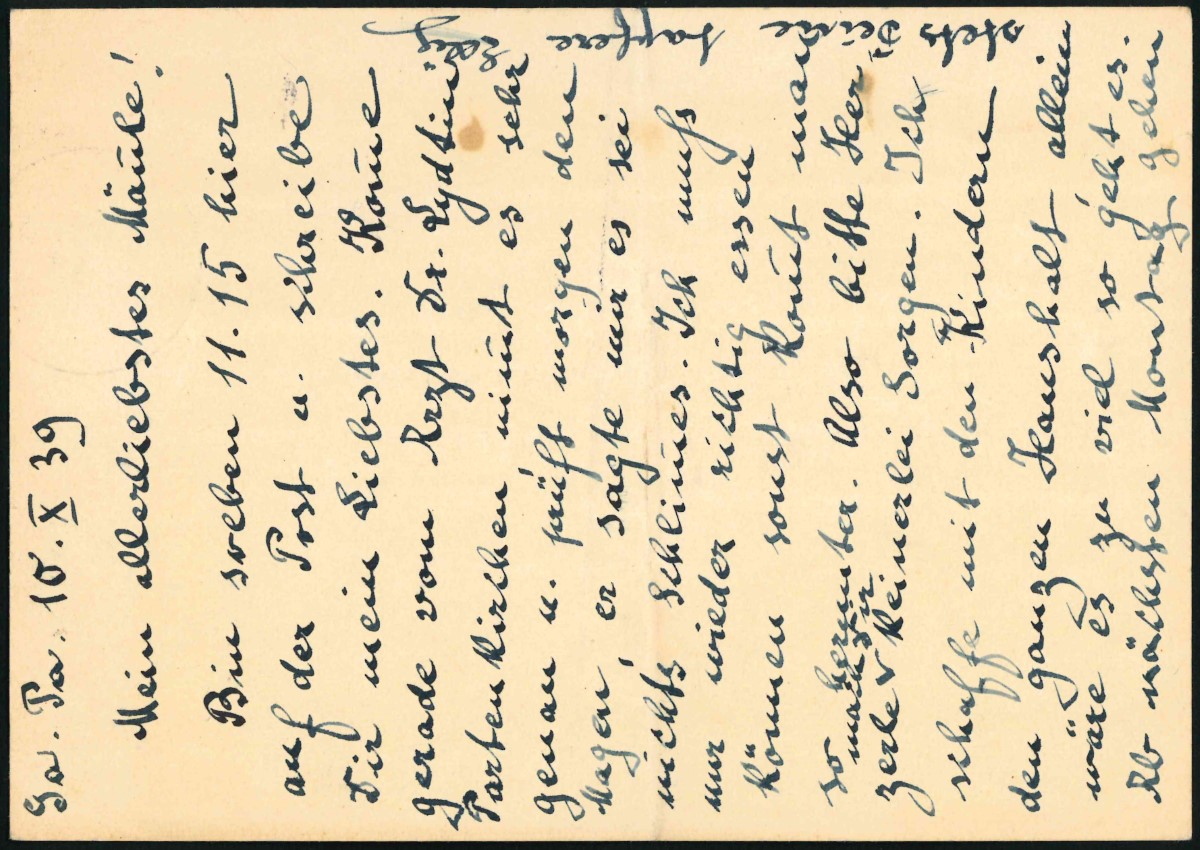 Ga. Pa. 10. X 39
Mein allerliebstes Mäusle!
Bin soeben 11.15 hier
auf der Post u. schreibe
Dir mein Liebstes. Kom̄e
gerade vom Arzt Dr. Lydtin
Partenkirchen nim̄t es sehr
genau u. prüft morgen den
Magen, er sagte mir es sei
nichts Schlim̄es. Ich muß
nur wieder richtig essen
können sonst kom̄t man
so herunter. Also bitte Her-
mach Dir
zerle v keinerlei Sorgen. Ich
schaffe mit den Kindern
den ganzen Haushalt allein
wäre es zu viel so geht es.
Ab nächsten Montag gehen
stets Deine tapfere